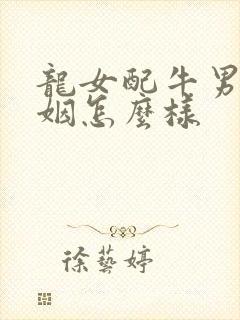 龍女配牛男
姻怎麼樣
徐藝婷